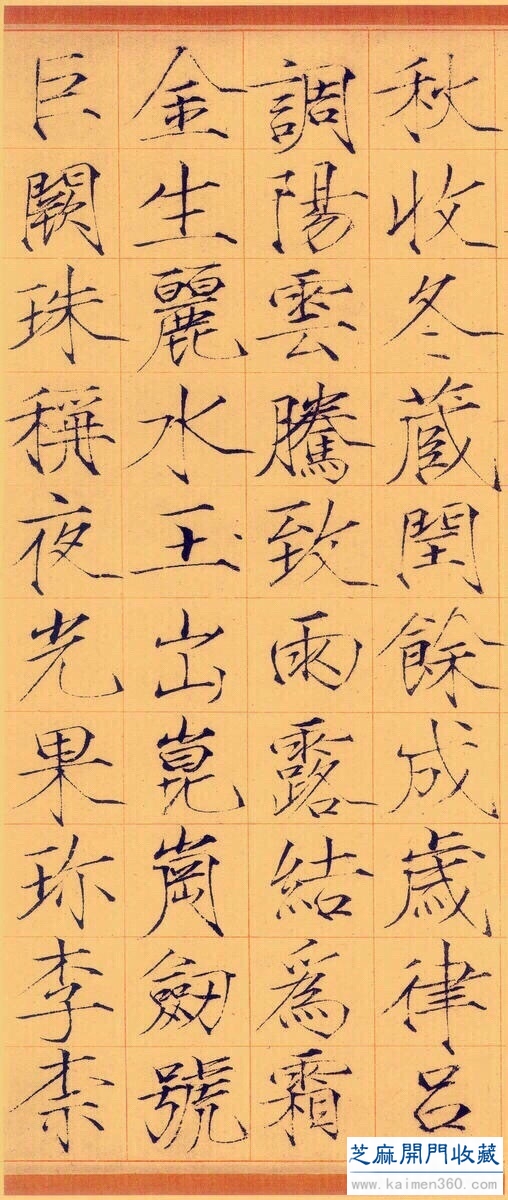 秋收冬蔵閏餘成歲律呂
調陽雲騰致雨露結爲霜
金生麗水玉出崑崗劔號
巨闕珠稱夜光果珎李柰
芝麻開門收藏
www.kaimen360.com